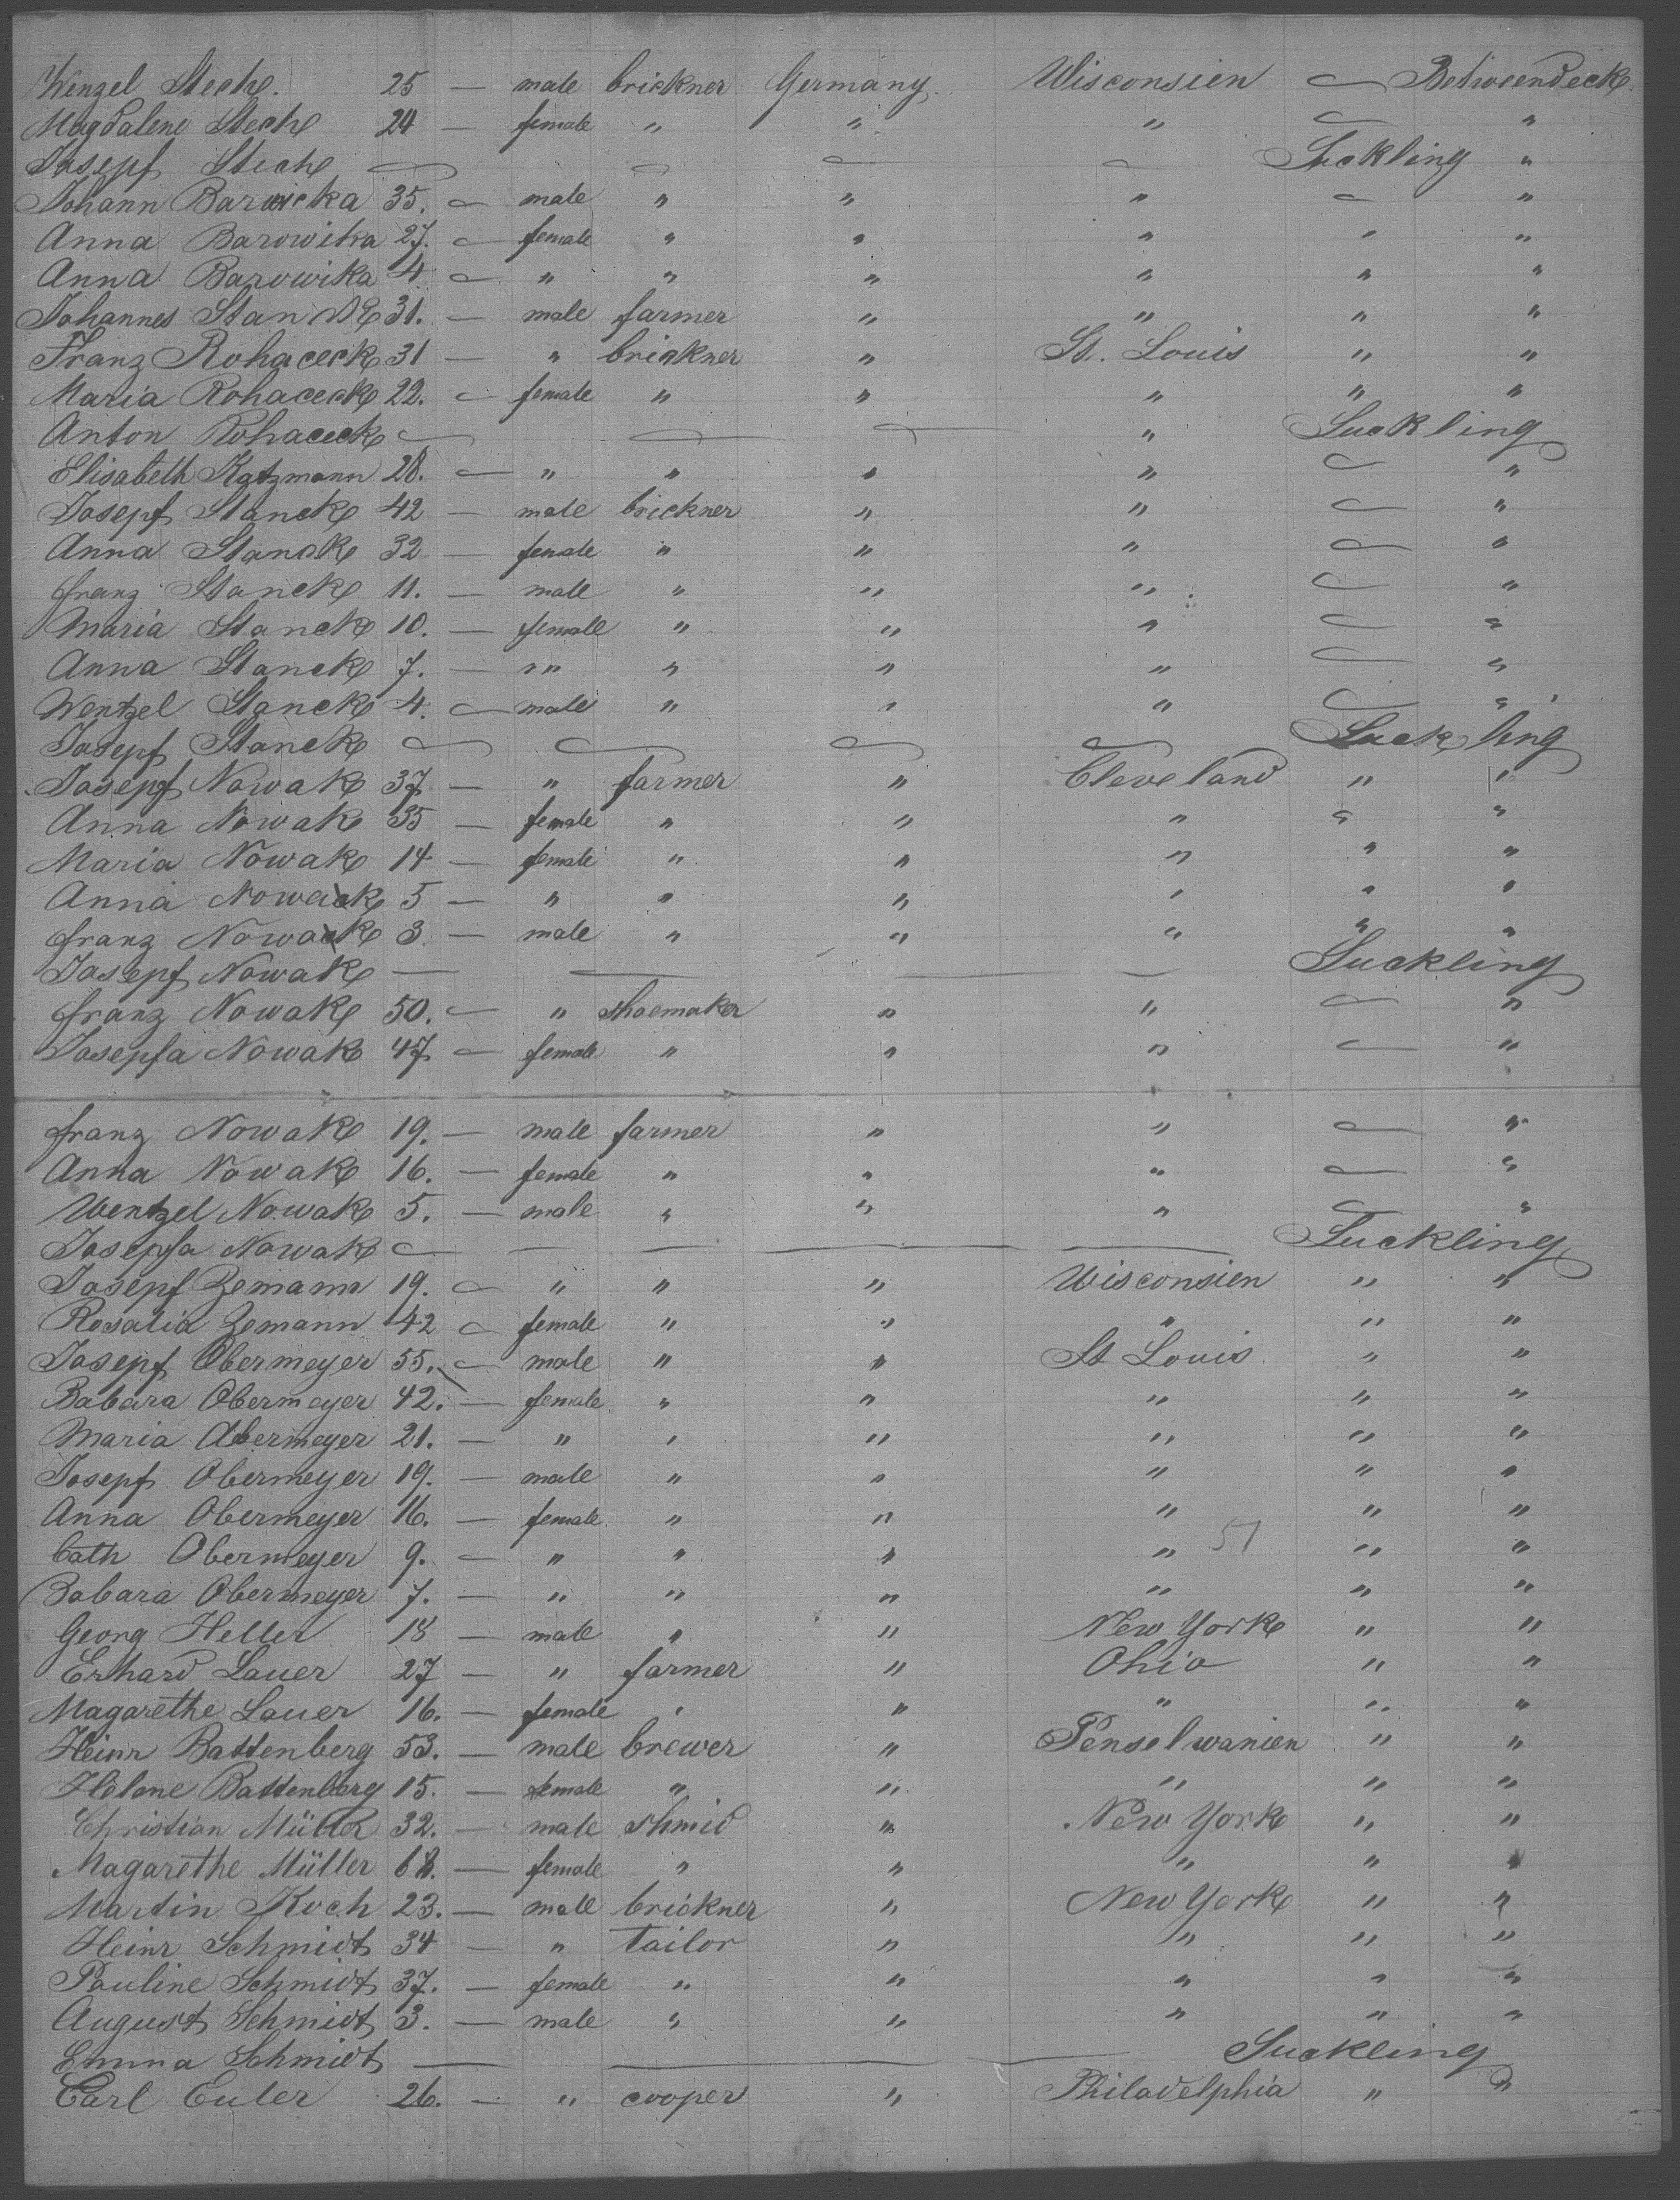 Wenzel Stech. 25 — male brickner Germany. Wisconsien — Betweendeck.
Magdalene Stech 24 — female " " " — "
Josepf Stech — — — — Suckling "
Johann Barwicka 35. — male " " " — "
Anna Barowika 27. — female " " " " "
Anna Barowika 4. — " " " " " "
Johannes Stan 31. — male farmer " " " "
Franz Rohaceck 31 — " brickner " St. Louis " "
Maria Rohaceck 22. — female " " " " "
Anton Rohaceck — — — " Suckling
Elisabeth Katzmann 28. — " " " " — "
Josepf Stanck 42 — male brickner " " — "
Anna Stanck 32 — female " " " — "
franz Stanck 11. — male " " " — "
Maria Stanck 10. — female " " " — "
Anna Stanck 7. — " " " " — "
Wentzel Stanck 4. — male " " " — "
Josepf Stanck — — — — Suckling
Josepf Nowak 37. — " farmer " Cleveland " "
Anna Nowak 35 — female " " " " "
Maria Nowak 14 — female " " " " "
Anna Nowak 5 — " " " " " "
franz Nowak 3. — male " " " " "
Josepf Nowak — — — — Suckling
franz Nowak 50. — " shoemaker " " — "
Josepfa Nowak 47 — female " " " — "
franz Nowak 19. — male farmer " " — "
Anna Nowak 16. — female " " " — "
Wentzel Nowak 5. — male " " " — "
Josepfa Nowak — — — — — Suckling
Josepf Zemann 19. — " " " Wisconsien " "
Rosalia Zemann 42 — female " " " " "
Josepf Obermeyer 55. — male " " St Louis " "
Babara Obermeyer 42. — female " " " " "
Maria Obermeyer 21. — " " " " " "
Josepf Obermeyer 19. — male " " " " "
Anna Obermeyer 16. — female " " " " "
Cath Obermeyer 9. — " " " " 51 " "
Babara Obermeyer 7. — " " " " " "
Georg Heller 18 — male " " New York " "
Erhard Lauer 27 — " farmer " Ohio " "
Magarethe Lauer 16. — female " " " " "
Heinr Battenberg 53. — male brewer " Penselwanien " "
Helene Battenberg 15. — female " " " " "
Christian Müller 32. — male shmid " New York " "
Magarethe Müller 68. — female " " " " "
Martin Koch 23. — male brickner " New York " "
Heinr Schmidt 34 — " Tailor " " " "
Pauline Schmidt 37. — female " " " " "
August Schmidt 3. — male " " " " "
Emma Schmidt — — — — Suckling
Carl Euler 26. — " cooper " Philadelphia " "